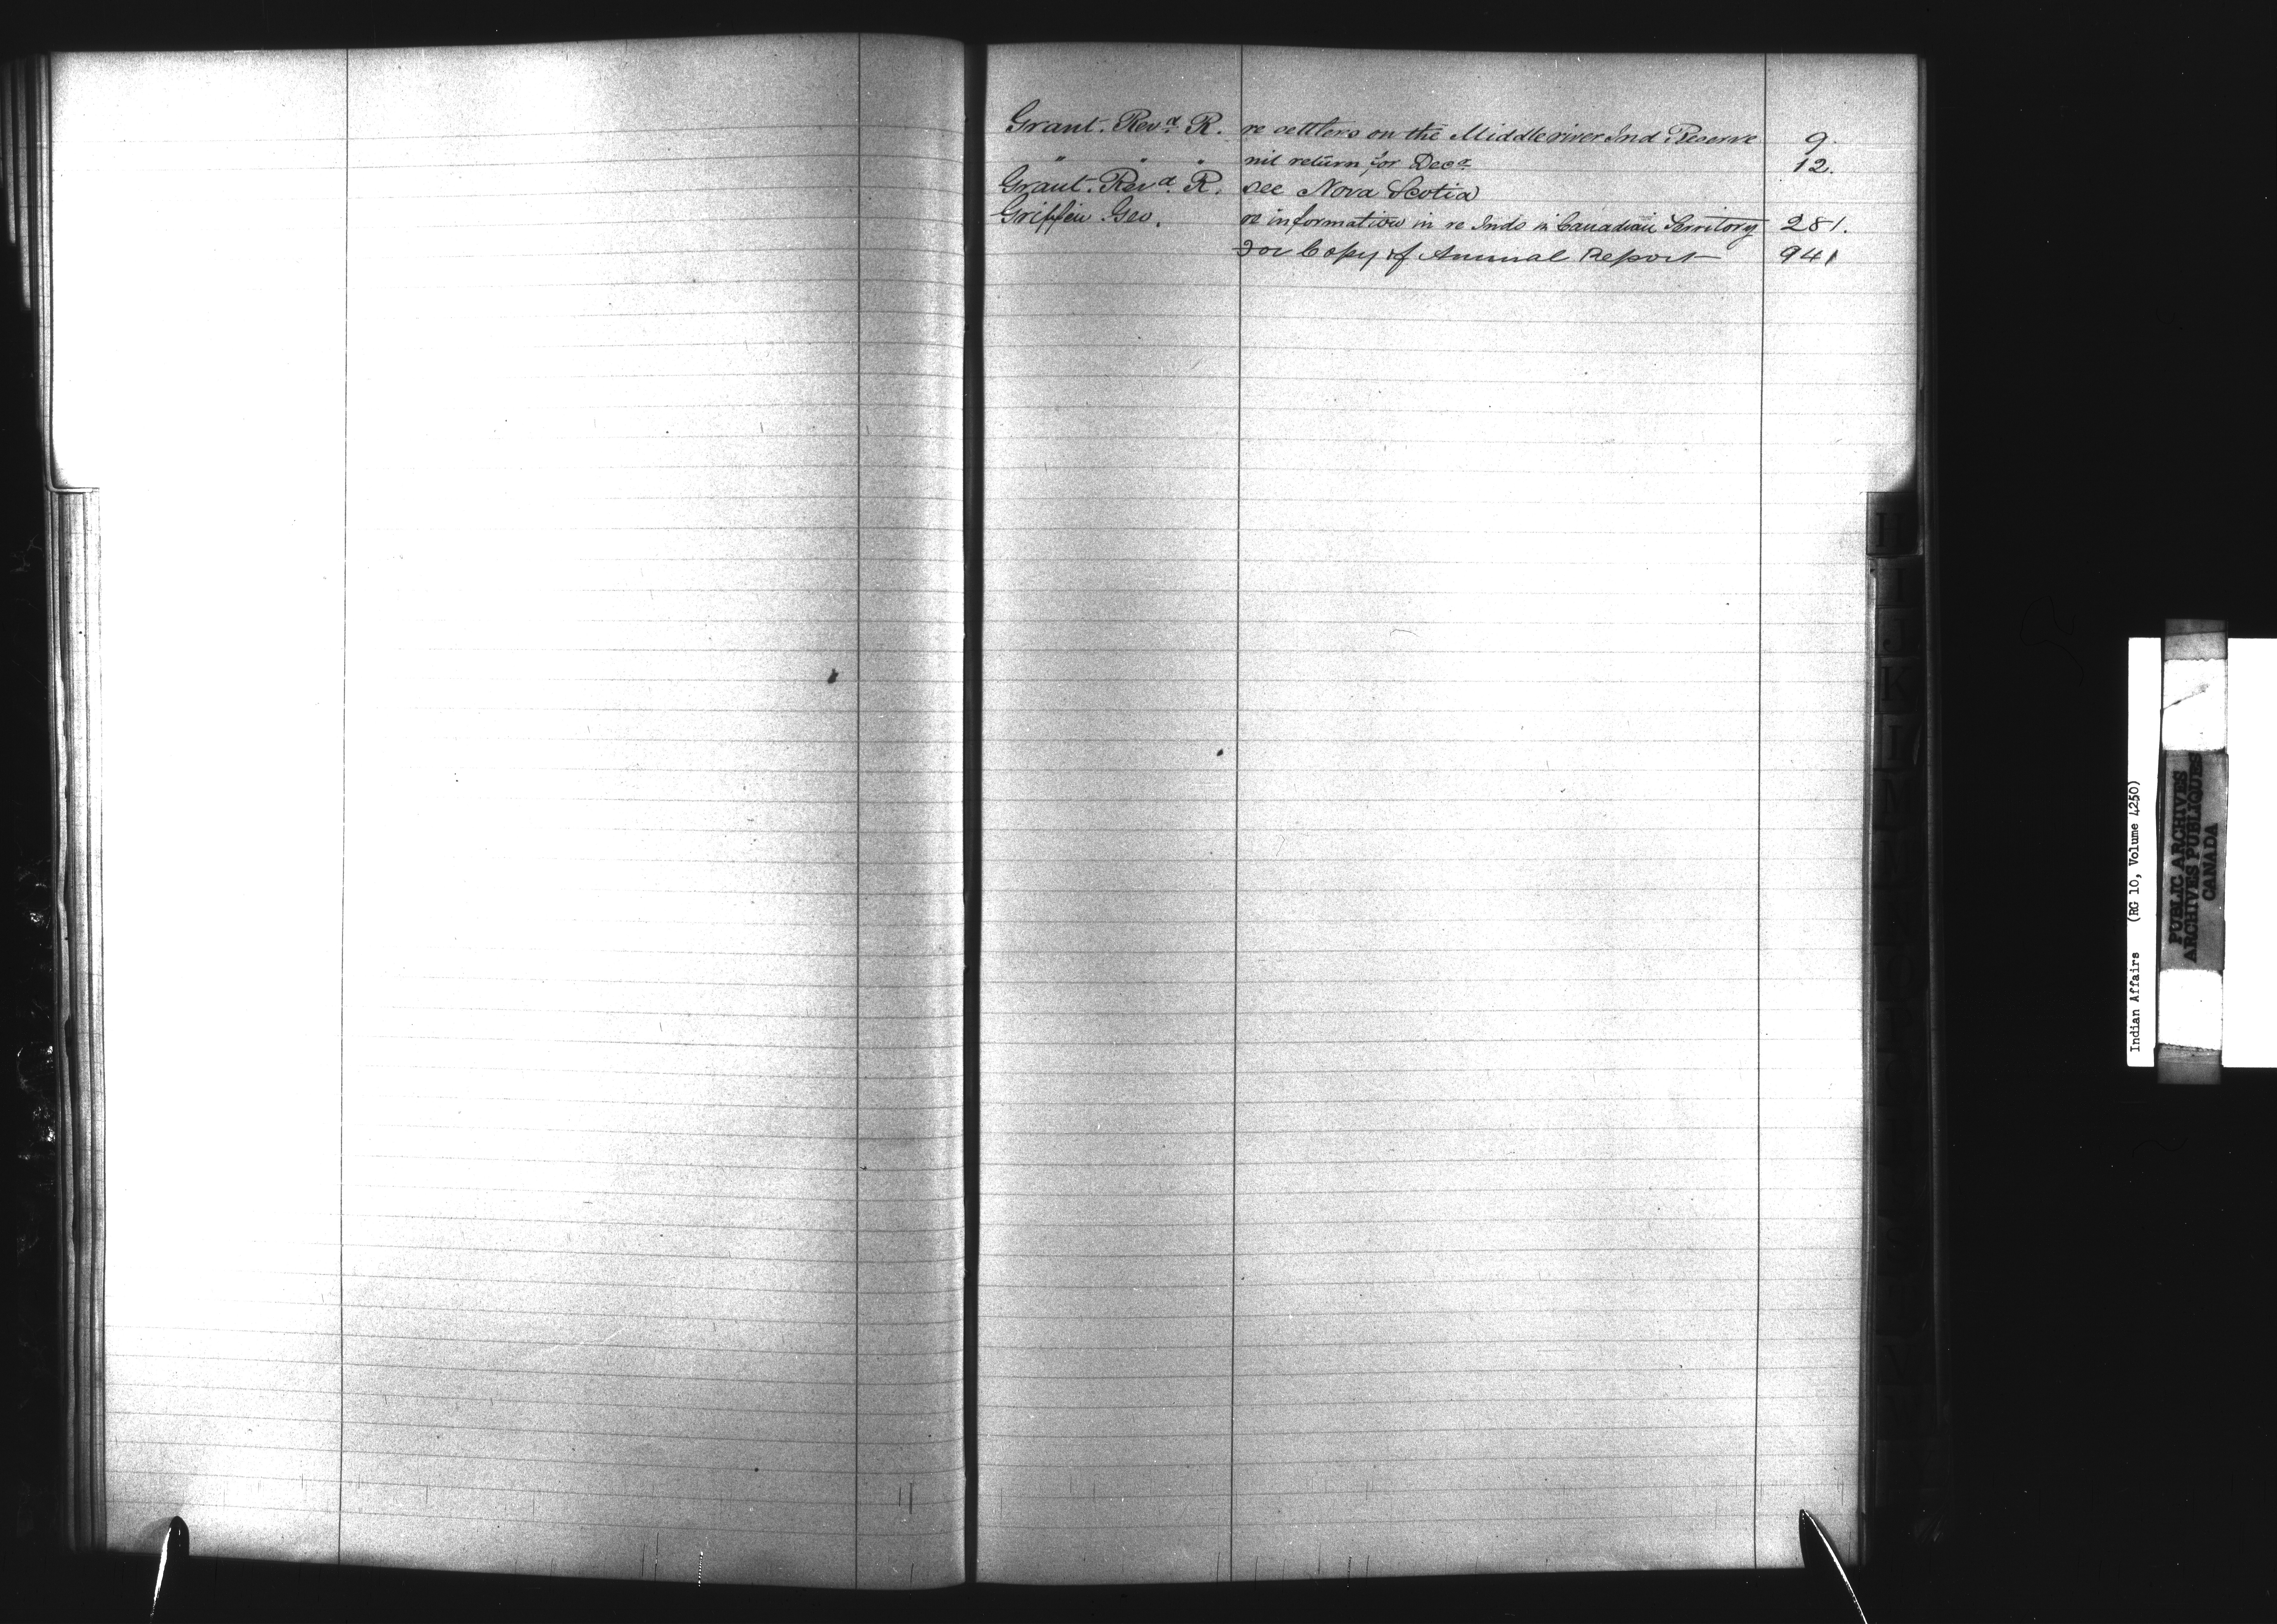 Grant. Revd. R. re settlers on the Middle river Ind Reserve 9.
" " " nil return for Decr 12.
Grant. Revd. R. see Nova Scotia
Griffin Geo. re information in re Inds in Canadian Territory 281.
For Copy of Annual Report 941
H
I
J
K
L
M
Indian Affairs (RG 10, Volume 4250)
PUBLIC ARCHIVES
ARCHIVES PUBLIQUES
CANADA